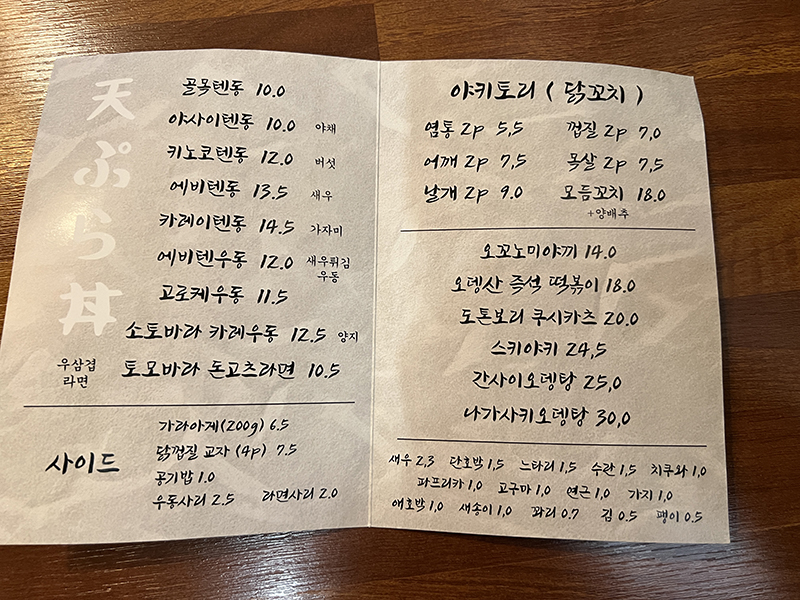 天ぷら丼
골목텐동 10.0
야사이텐동 10.0 야채
키노코텐동 12.0 버섯
에비텐동 13.5 새우
카레이텐동 14.5 가자미
에비텐우동 12.0 새우튀김 우동
고로케우동 11.5
소토바라 카레우동 12.5 양지
우삼겹 라면 토모바라 돈고츠라면 10.5
사이드
가라아게(200g) 6.5
닭껍질 교자 (4p) 7.5
공기밥 1.0
우동사리 2.5 라면사리 2.0
야키토리 ( 닭꼬치 )
염통 2p 5,5 껍질 2p 7,0
어깨 2p 7,5 목살 2p 7,5
날개 2p 9.0 모듬꼬치 18.0
+양배추
오꼬노미야끼 14.0
오뎅산 즉석 떡볶이 18.0
도톤보리 쿠시카츠 20.0
스키야키 24,5
간사이오뎅탕 25,0
나가사키오뎅탕 30,0
새우 2,3 단호박 1,5 느타리 1,5 수란 1,5 치쿠와 1,0
파프리카 1,0 고구마 1,0 연근 1,0 가지 1,0
애호박 1,0 새송이 1,0 꽈리 0.7 김 0.5 팽이 0.5